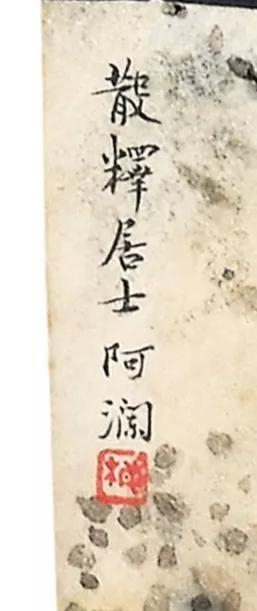 散釋居士阿澜